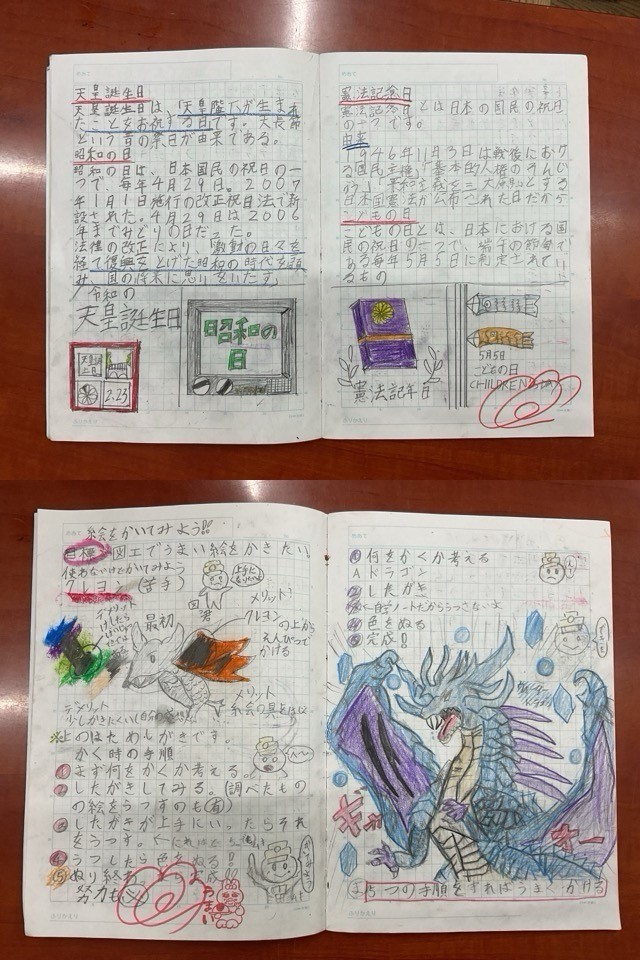 天皇誕生日
天皇誕生日は、天皇陛下が生まれ
たことをお祝する日です。天長節
という昔の祭日が由来である。
昭和の日
昭和の日は、日本国民の祝日の一
つで、毎年4月29日。2007
年1月1日施行の改正祝日法で新
設された。4月29日は2006
年までみどりの日だった。
法律の改正により、激動の日々を
経て復興をとげた昭和の時代を顧
み、国の将来に思いをいたす」
令和の
天皇誕生日
2.23
昭和の
日
憲法記念日
憲法記念日とは日本の国民の祝日
の一つです。
由来
1946年11月3日は戦後におけ
る国民主権」「基本的人権のそんじ
ゅう」「平和主義を三大原則とする
日本国憲法が公布された日だから
こどもの日
こどもの日とは、日本における国
民の祝日の一つで、端午の節句で
ある毎年5月5日に制定されてい
るもの
憲法記年日
5月5日
こどもの日
CHILDREN'S DAY
絵をかいてみよう!!
目標 図工でうまい絵をかきたい
使わないけどかいてみよう
クレヨン(苦手)
デメリット
最初
メリット!
クレヨンの上から
えんぴつで
かける
メリット
デメリット
少しかきにくい
※上のはためしがきです。
かく時の手順
①まず何をかくか考える。
②したがきしてみる。(調べたもの
の絵をうつすのも(有)
③したがきが上手にいったらそれ
をうつす。
④うつしたら色をぬる!!
⑤ぬり終えたら完成
努力も
①何をかくか考える
A ドラゴン
②したがき
③自学ノートだからうつさないよ
④色をぬる
⑤完成!
ギャ
オー
5つの手順をすればうまくかける